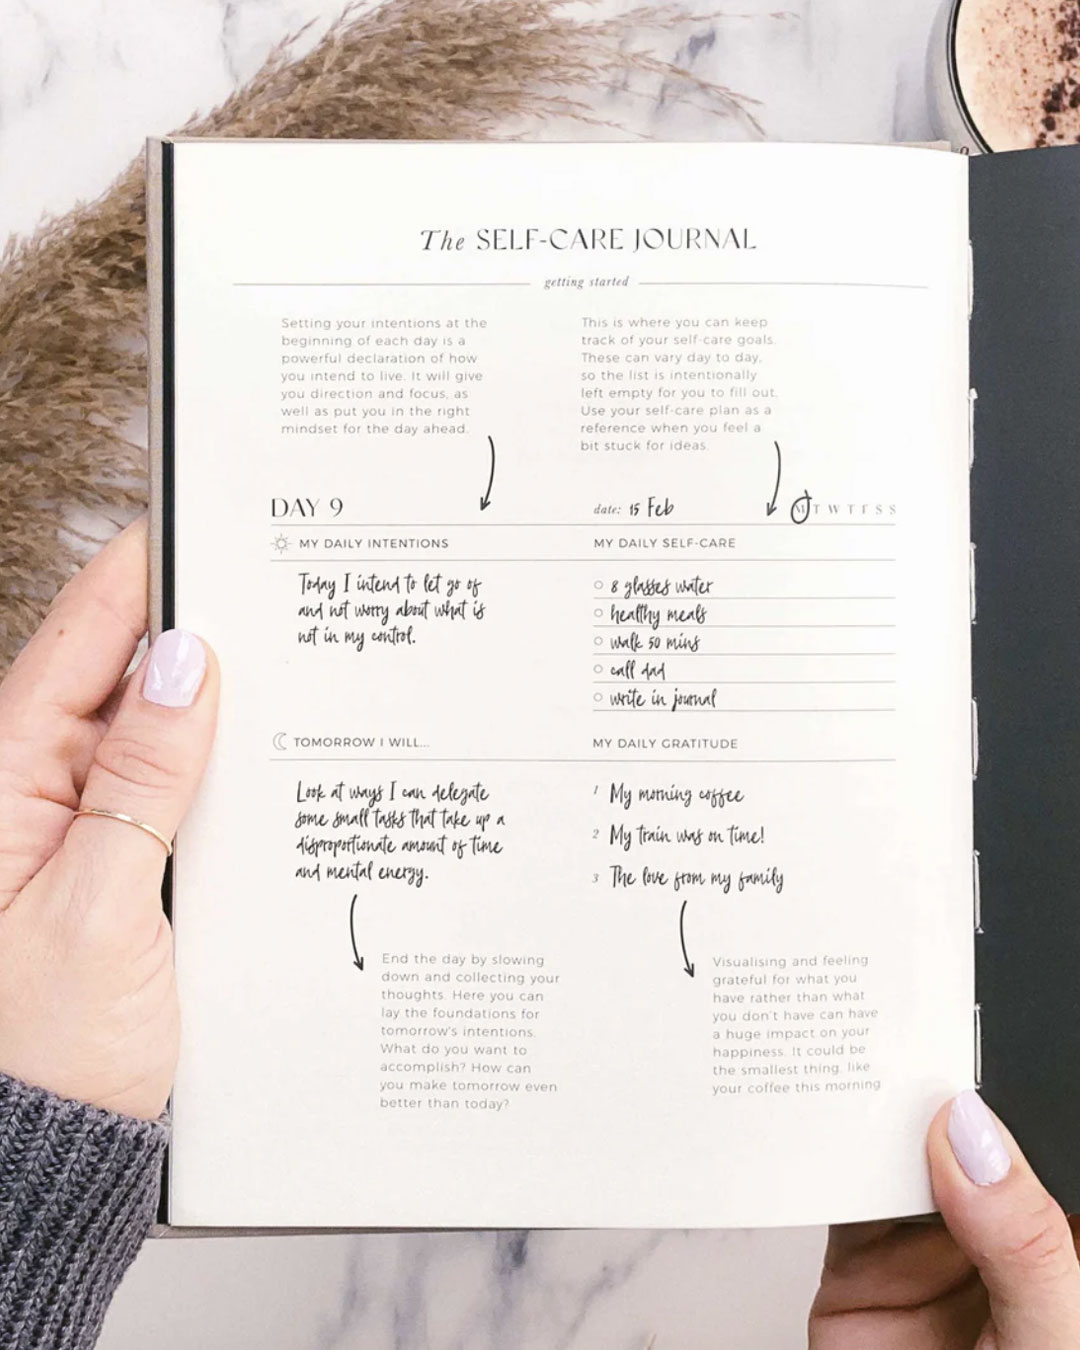 The SELF-CARE JOURNAL
getting started
Setting your intentions at the
beginning of each day is a
powerful declaration of how
you intend to live. It will give
you direction and focus, as
well as put you in the right
mindset for the day ahead.
This is where you can keep
track of your self-care goals.
These can vary day to day,
so the list is intentionally
left empty for you to fill out.
Use your self-care plan as a
reference when you feel a
bit stuck for ideas.
DAY 9
date: 15 Feb
M T W T F S S
MY DAILY INTENTIONS
Today I intend to let go of
and not worry about what is
not in my control.
MY DAILY SELF-CARE
8 glasses water
healthy meals
walk 50 mins
call dad
write in journal
TOMORROW I WILL...
Look at ways I can delegate
some small tasks that take up a
disproportionate amount of time
and mental energy.
MY DAILY GRATITUDE
1 My morning coffee
2 My train was on time!
3 The love from my family
End the day by slowing
down and collecting your
thoughts. Here you can
lay the foundations for
tomorrow's intentions.
What do you want to
accomplish? How can
you make tomorrow even
better than today?
Visualising and feeling
grateful for what you
have rather than what
you don't have can have
a huge impact on your
happiness. It could be
the smallest thing, like
your coffee this morning